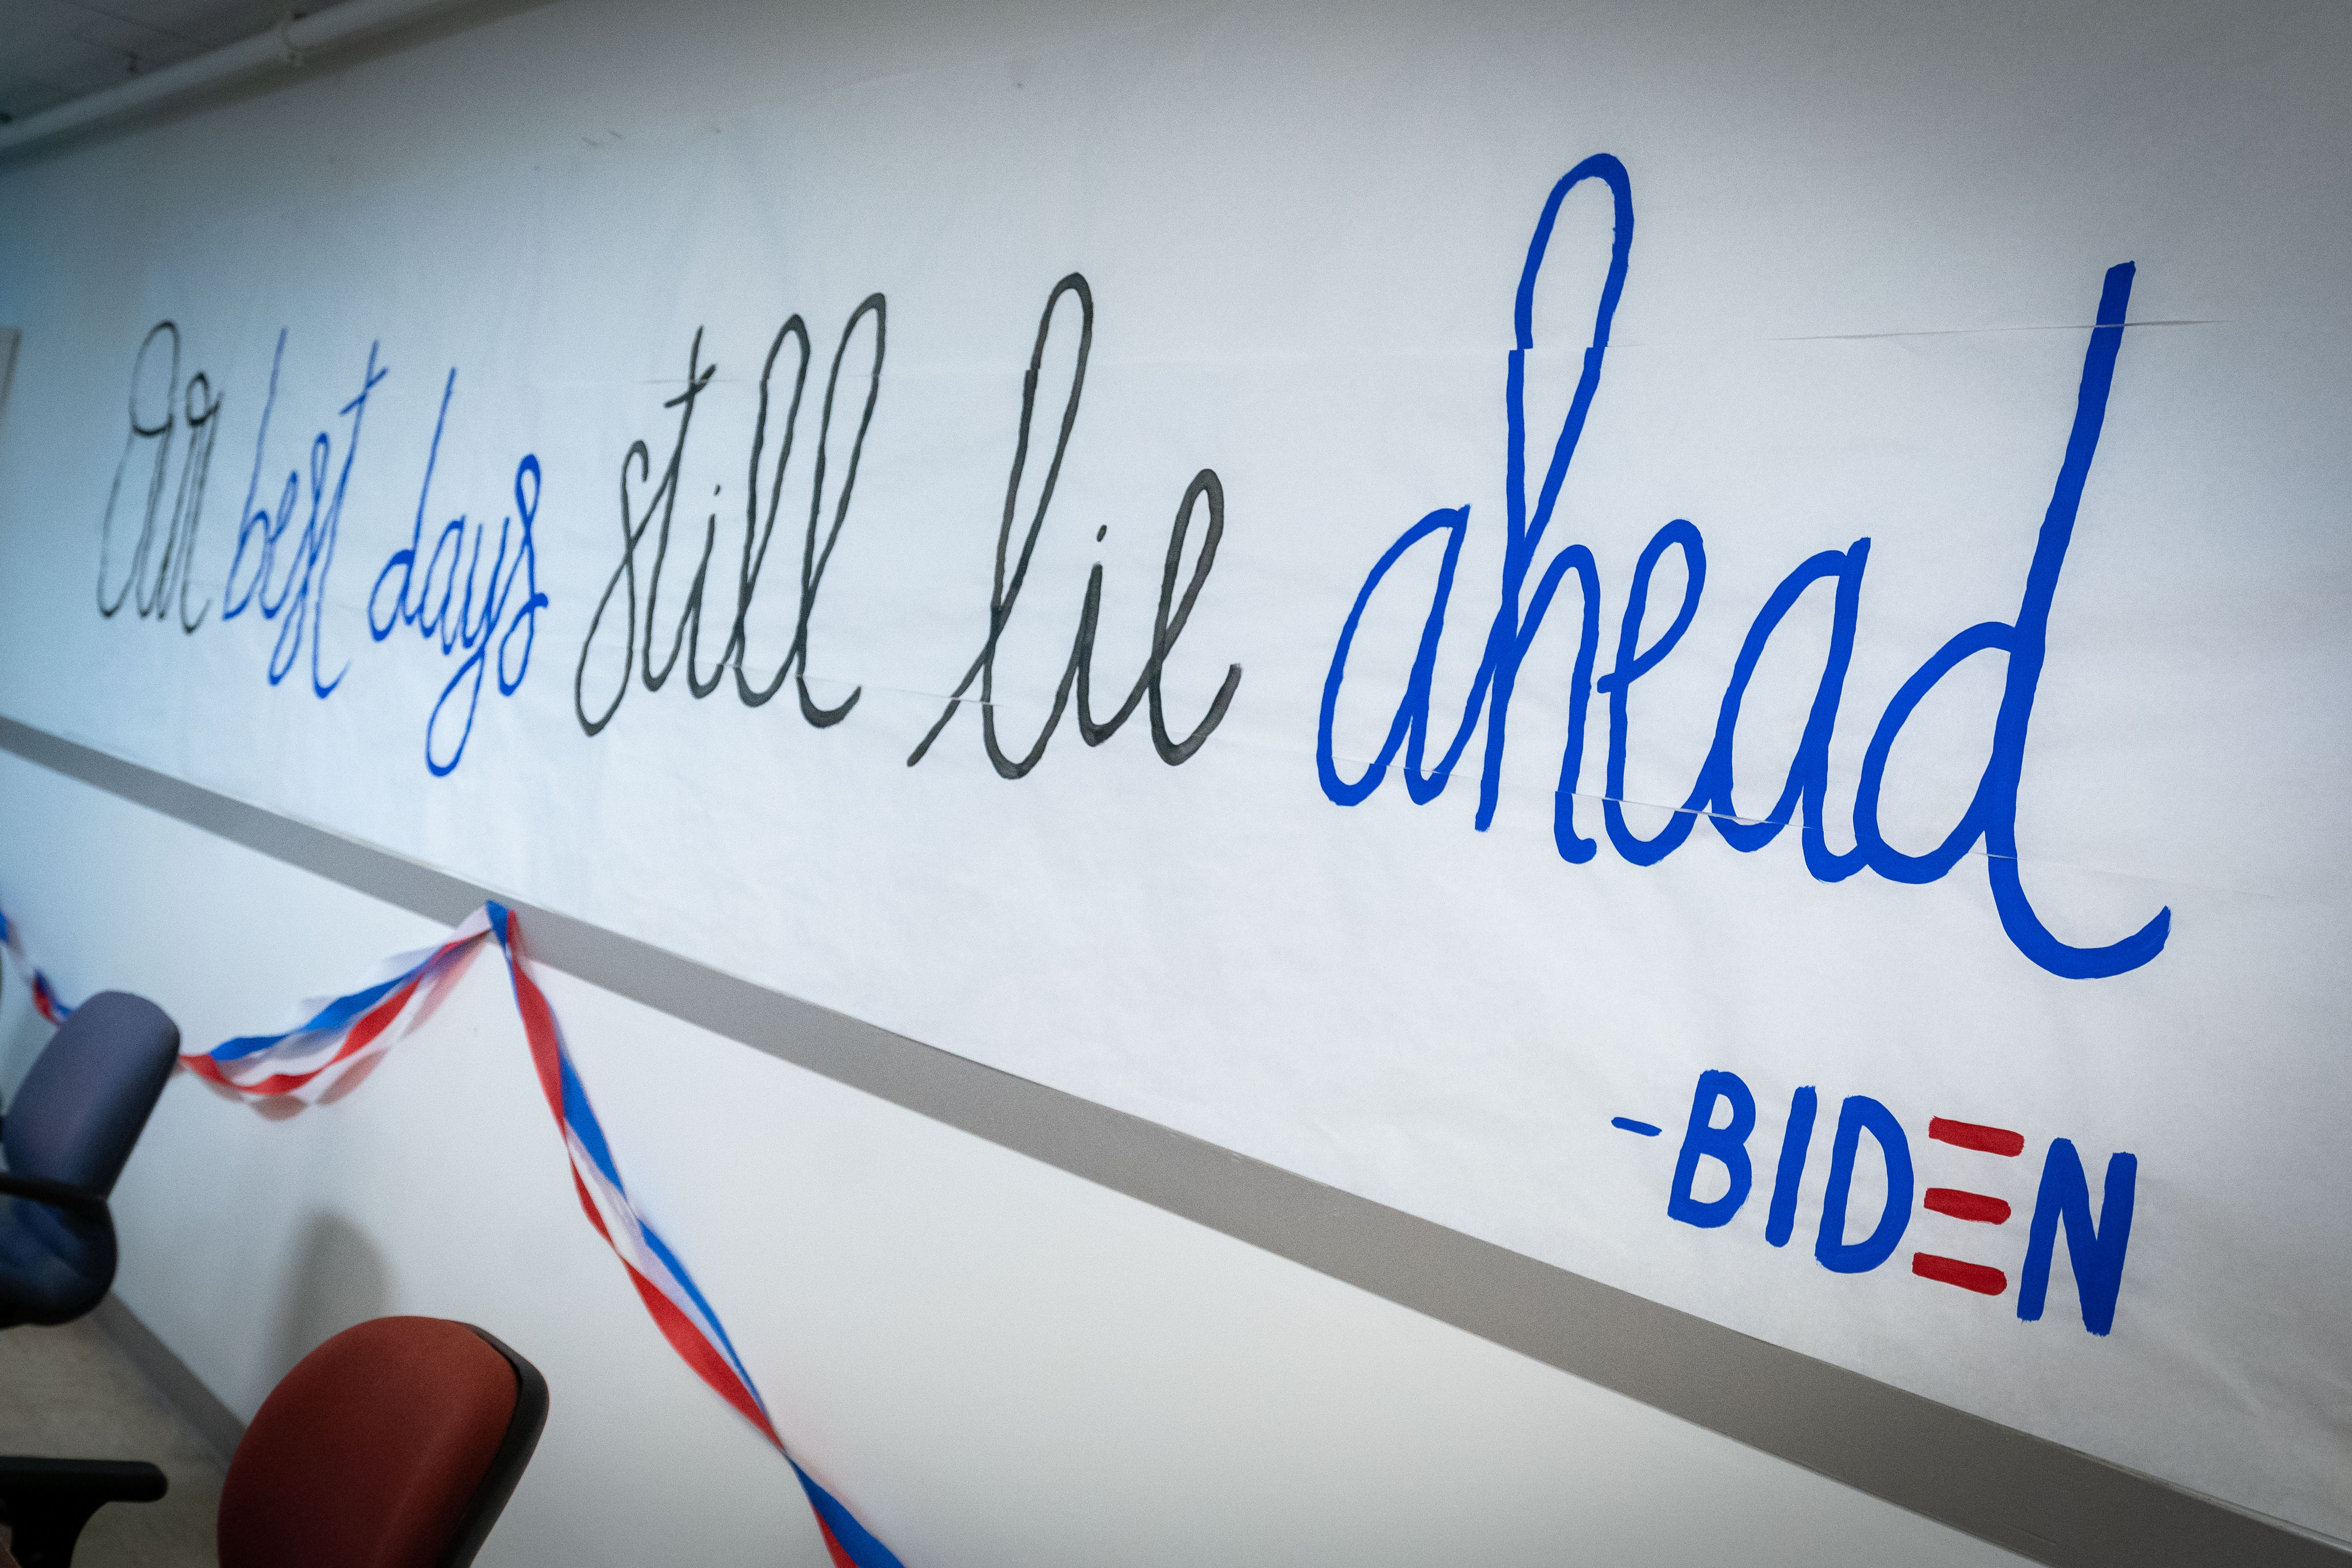 Our best days still lie ahead
-BIDEN